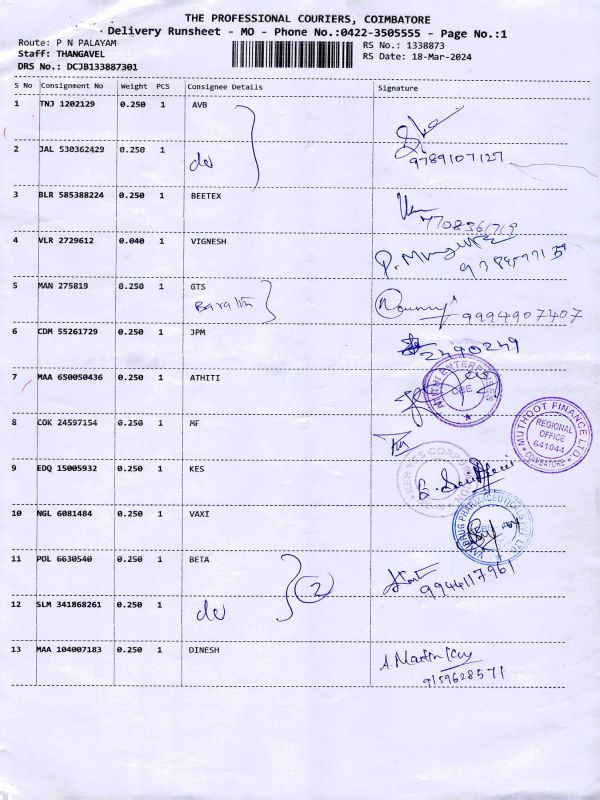 THE PROFESSIONAL COURIERS, COIMBATORE
Delivery Runsheet - MO - Phone No.:0422-3505555 - Page No.:1
Route: P N PALAYAM
RS No.: 1338873
Staff: THANGAVEL
RS Date: 18-Mar-2024
DRS No.: DCJB133887301
S No Consignment No Weight PCS Consignee Details Signature
1 TNJ 1202129 0.250 1 AVB
2 JAL 530362429 0.250 1 do
9789107127
3 BLR 585388224 0.250 1 BEETEX
7708361719
4 VLR 2729612 0.040 1 VIGNESH
5 MAN 275819 0.250 1 GTS
9994907407
6 CDM 55261729 0.250 1 JPM
2490249
7 MAA 650050436 0.250 1 ATHITI
ENTERPRISES
CBE
8 COK 24597154 0.250 1 MF
MUTHOOT FINANCE LTD
REGIONAL
OFFICE
641044
COIMBATORE
9 EDQ 15005932 0.250 1 KES
10 NGL 6081484 0.250 1 VAXI
11 POL 6630540 0.250 1 BETA
2
9944117961
12 SLM 341868261 0.250 1 do
13 MAA 104007183 0.250 1 DINESH
9159628571